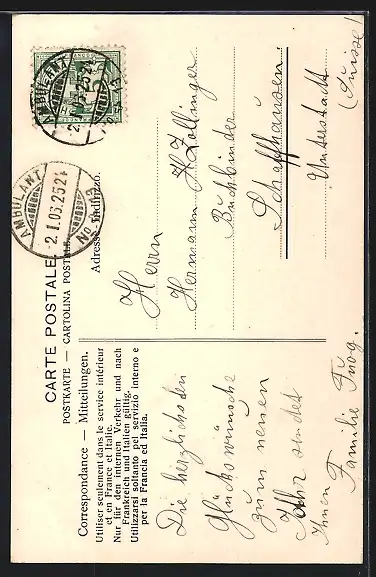 CARTE POSTALE.
POSTKARTE — CARTOLINA POSTALE.
Adresse. Indirizzo.
AMBULANT
2.I.05.25 24
AMBULANT
2.I.05.25 24
No
Herrn
Hermann H. Zollinger
Buchbinder
Schaffhausen.
Unterstadt
(Suisse)
Correspondance — Mitteilungen.
Utiliser seulement dans le service intérieur
et en France et Italie.
Nur für den internen Verkehr und nach
Frankreich und Italien gültig.
Utilizzarsi soltanto pel servizio interno e
per la Francia ed Italia.
Die herzlichsten
Glückswünsche
zum neuen
Jahr sendet
Ihnen Familie